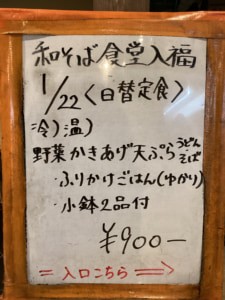 和そば食堂入福
1/22〈日替定食〉
冷)温)
野菜かきあげ天ぷらうどんそば
・ふりかけごはん(ゆかり)
・小鉢2品付
¥900-
=入口こちら⇒